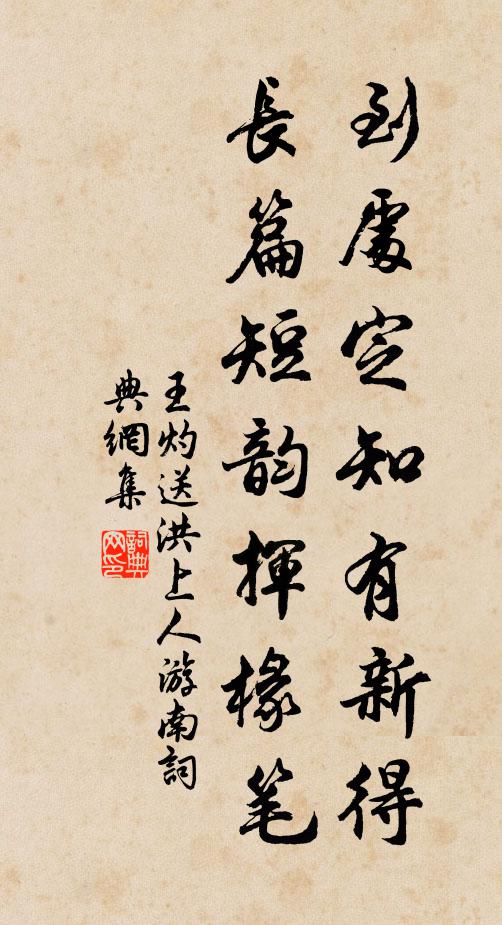 到處定知有新得
長篇短韵揮椽笔
王灼送洪上人游南詞
典網集
詞典
网印